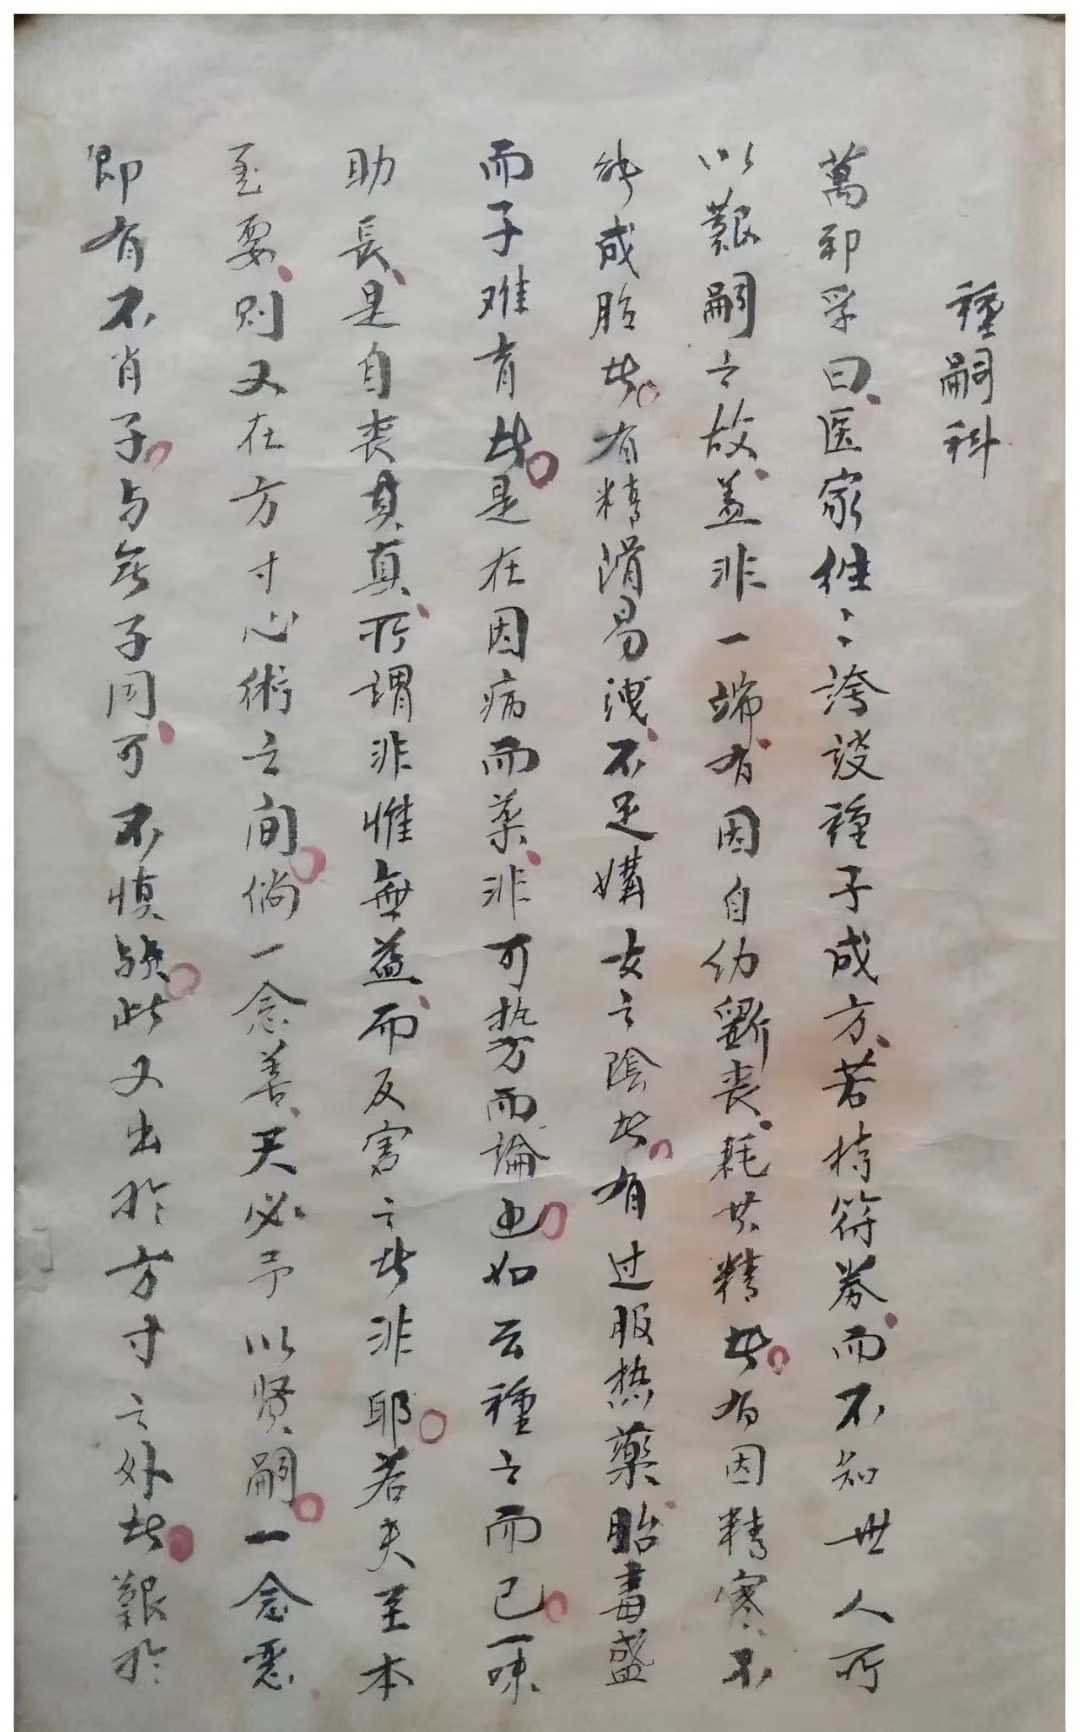 種嗣科
萬邦孚曰医家往〻誇談種子成方若持符券而不知世人所
以艱嗣之故盖非一端有因自幼斵丧耗其精者有因精寒不
能成胎者有精滑易洩不足媾女之陰者有过服热藥胎毒盛
而子难育者是在因病而薬非可执方而論也如云種之而已一味
助長是自丧其真所謂非惟無益而反害之者非耶若夫至本
至要则又在方寸心術之间倘一念善天必予以贤嗣一念惡
即有不肖子与无子同可不慎欤此又出於方寸之外者艱於